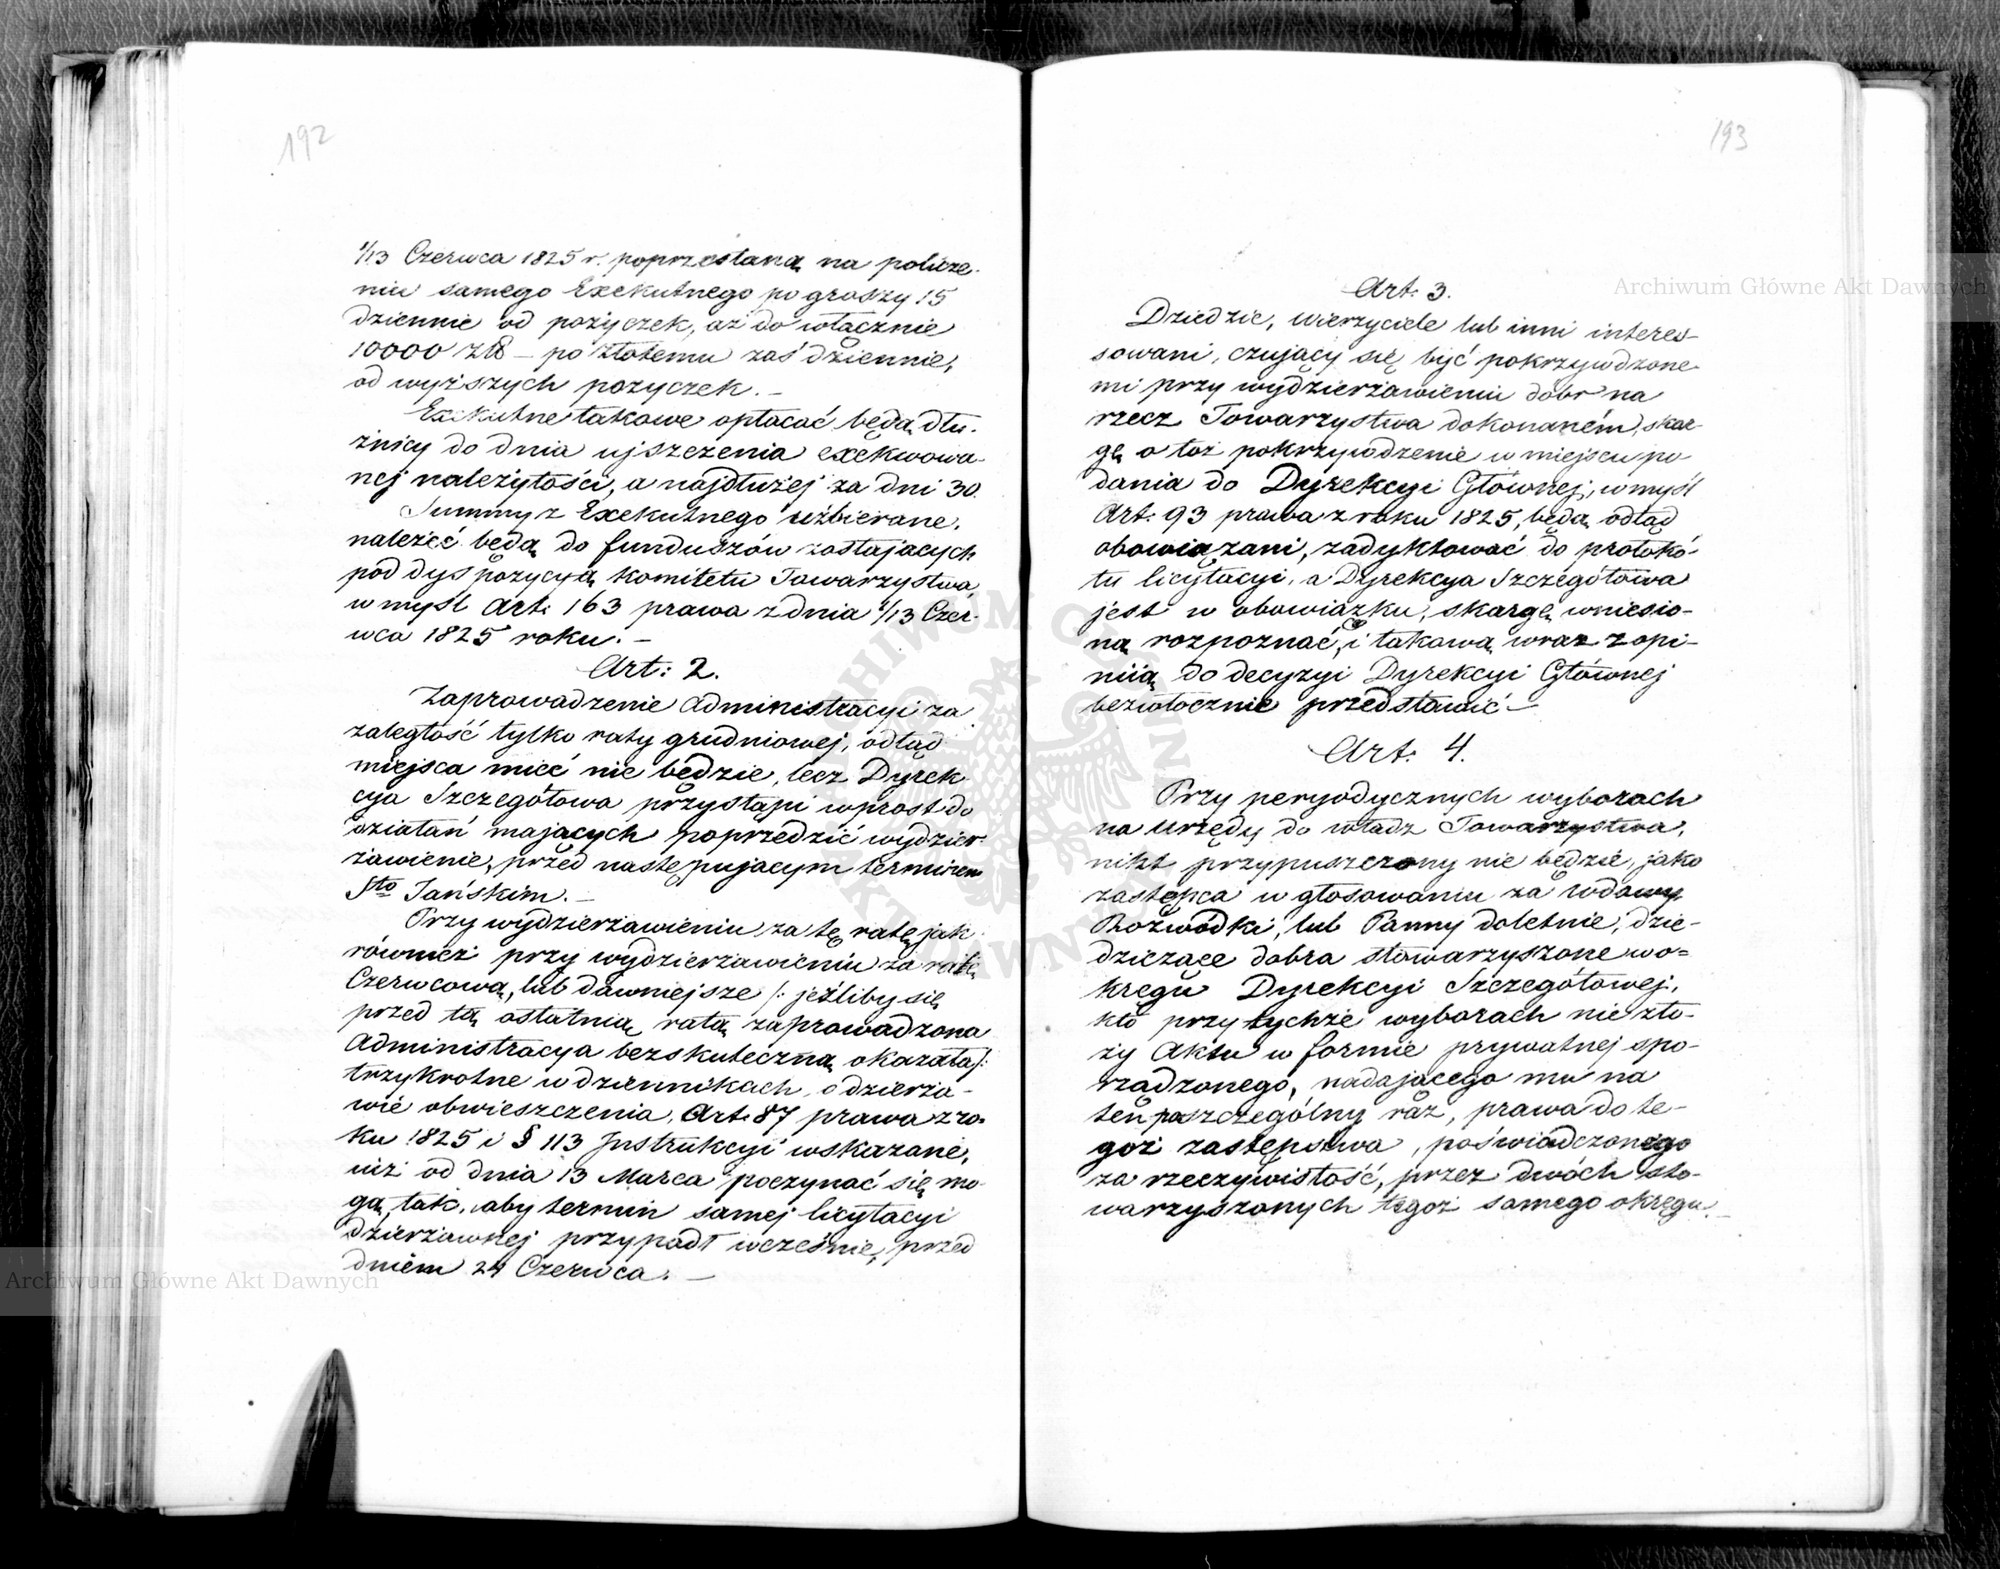 192
1/13 Czerwca 1825 r. poprzestaną na policze-
niu samego Exekutnego po groszy 15
dziennie od pożyczek, aż do włącznie
10000 złt — po złotemu zaś dziennie,
od wyższych pożyczek. —
Exekutne takowe opłacać będą dłu-
żnicy do dnia ujszczenia exekwowa-
nej należytości, a najdłużej za dni 30.
Summy z Exekutnego uzbierane,
należeć będą do funduszów zostających
pod dyspozycyą Komitetu Towarzystwa,
w myśl Art: 163 prawa z dnia 1/13 Czer-
wca 1825 roku. —
Art: 2.
Zaprowadzenie Administracyi za
zaległość tylko raty grudniowej, odtąd
miejsca mieć nie będzie, lecz Dyrek-
cya Szczegółowa przystąpi wprost do
działań mających poprzedzić wydzier-
żawienie, przed następującym terminem
Sto Jańskim. —
Przy wydzierżawieniu za tę ratę, jak
również przy wydzierżawieniu za ratę
Czerwcową, lub dawniejsze /: jeżliby się
przed tą ostatnią ratą zaprowadzona
Administracya bezskuteczną okazała :/
trzykrotne w dziennikach, o dzierża-
wie obwieszczenia, Art. 87 prawa z ro-
ku 1825 i § 113 Instrukcyi wskazane,
niż od dnia 13 Marca poczynać się mo-
gą, tak, aby termin samej licytacyi
dzierżawnej przypadł wcześnie, przed
dniem 24 Czerwca. —
193
Art: 3.
Dziedzic, wierzyciele lub inni interes-
sowani, czujący się być pokrzywdzone-
mi przy wydzierżawieniu dobr na
rzecz Towarzystwa dokonaném, skar-
gę o toż pokrzywdzenie w miejscu po
dania do Dyrekcyi Głównej, w myśl
Art: 93 prawa z roku 1825, będą odtąd
obowiązani, zadyktować do protokó-
łu licytacyi, a Dyrekcya Szczegółowa
jest w obowiązku, skargę wniesio-
ną rozpoznać, i takową wraz z opi-
niią do decyzyi Dyrekcyi Głównej
bezwłocznie przedstawić —
Art: 4.
Przy peryodycznych wyborach
na Urzędy do władz Towarzystwa,
nikt przypuszczony nie będzie, jako
zastępca w głosowaniu za wdowy
Rozwódki, lub Panny doletnie, dzie-
dziczące dobra stowarzyszone w o=
kręgu Dyrekcyi Szczegółowej,
kto przy tychże wyborach nie zło-
ży Aktu w formie prywatnej spo-
rządzonego, nadającego mu na
ten poszczególny raz, prawa do te-
goż zastępstwa, poświadczonego
za rzeczywistość, przez dwóch sto-
warzyszonych tegoż samego okręgu. —
Archiwum Główne Akt Dawnych
Archiwum Główne Akt Dawnych
ARCHIWUM GŁÓWNE AKT DAWNYCH